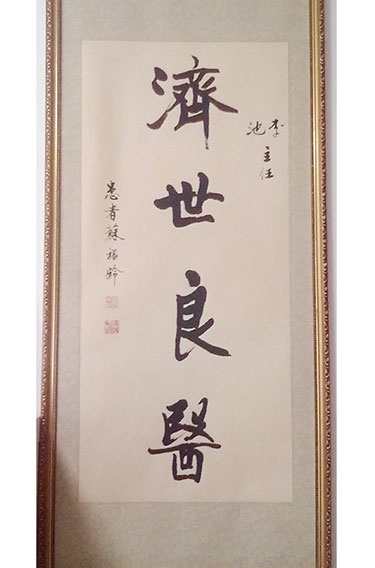 李池主任
濟世良醫
患者蘇福齡